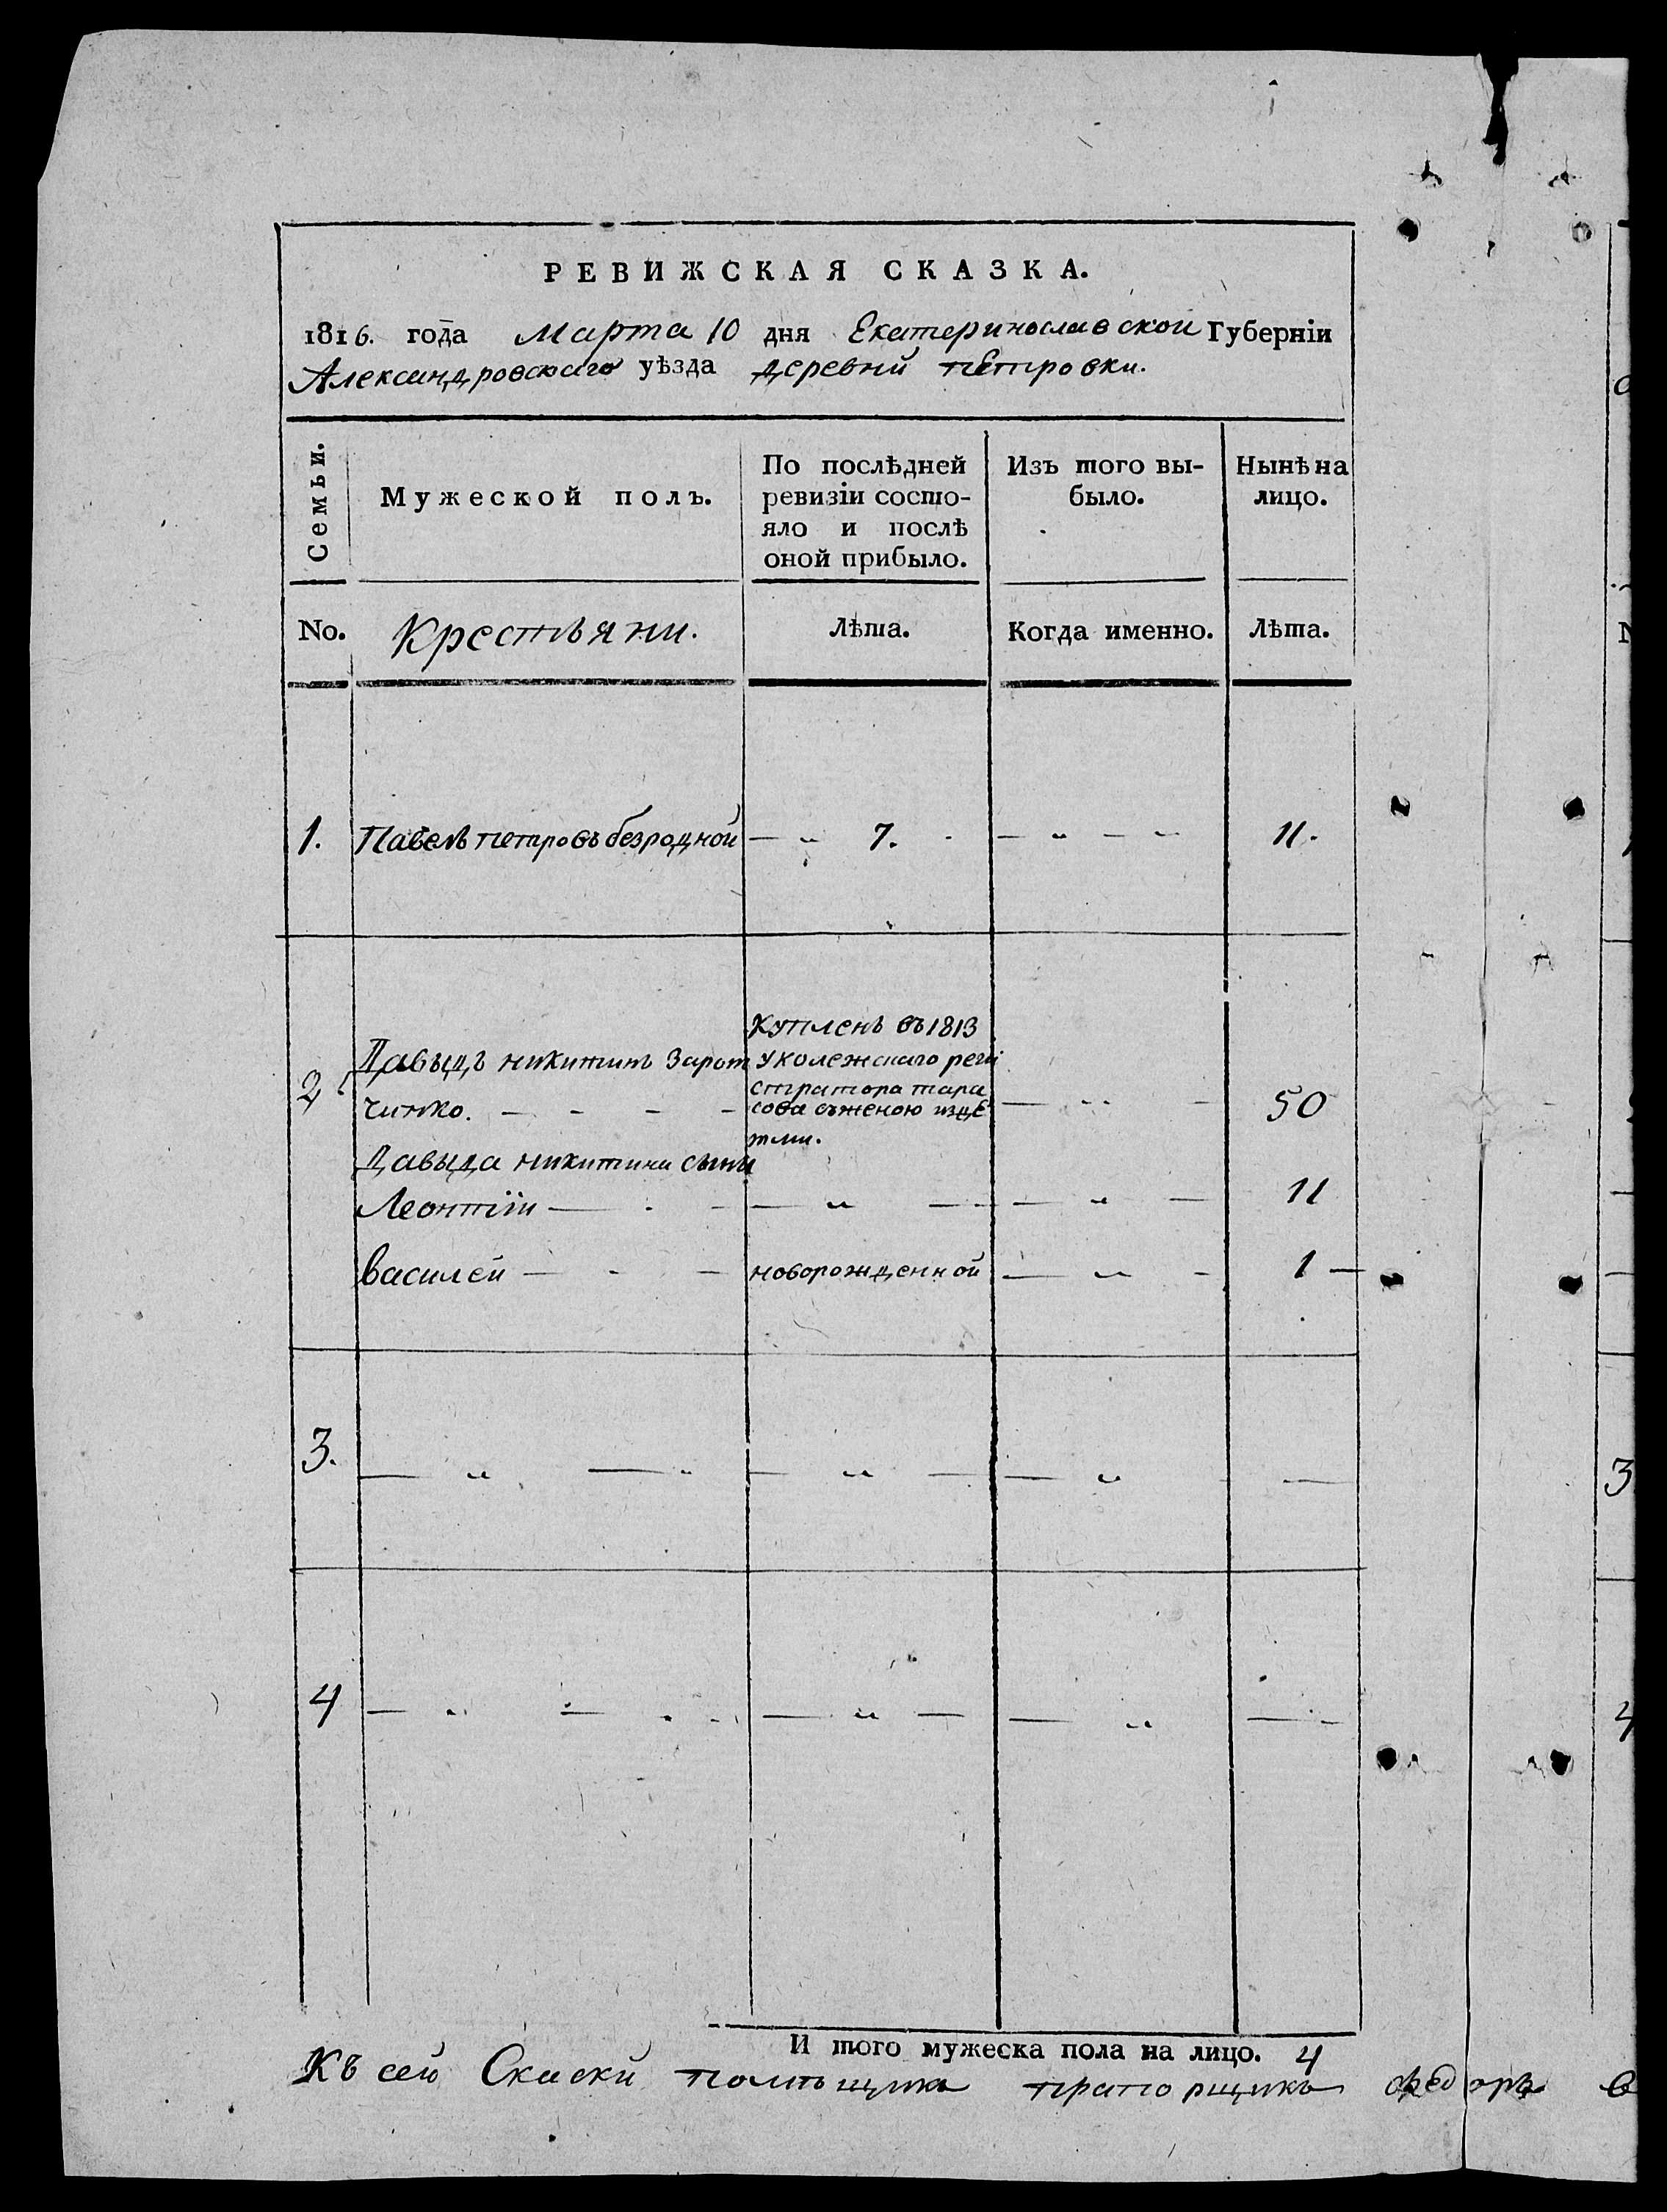 РЕВИЖСКАЯ СКАЗКА.
1816. года Марта 10 дня Екатеринославской Губерніи
Александровскаго уѣзда деревни петровки.
Семьи.
Мужеской полъ.
По послѣдней
ревизіи состо-
яло и послѣ
оной прибыло.
Изъ того вы-
было.
Нынѣ на
лицо.
No. Крестьяни. Лѣта. Когда именно. Лѣта.
1. Павелъ петровъ безродной 7. 11.
Купленъ въ 1813
2 Давыдъ никитинъ Зарот уколежскаго реги
стратора тара
чинко. сова съженою издѣ 50
тми.
Давыда никитина сыны
Леонтіи 11
василей новорожденной 1
3.
4
И того мужеска пола на лицо. 4
Къ сей Скаски помѣщикъ прапорщикъ федоръ
3